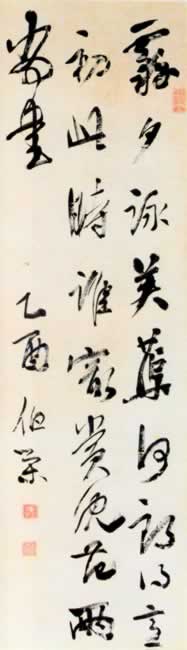 霧夕詠芙蕖何郎得意
初此時誰最賞沈范兩
尚書
乙酉 伯榮